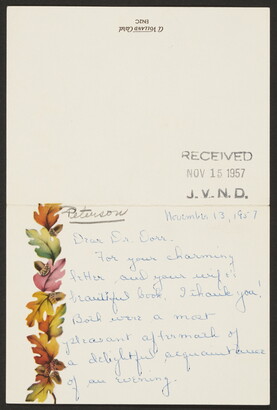 A Volland Card
ENGC
RECEIVED
NOV 15 1957
J. V. N. D.
Peterson
November 13, 1957
Dear Dr. Corr,
For your charming
letter, and your wife's
beautiful book, I thank you!
Both were a most
pleasant aftermath of
a delightful acquaintance
of an evening.